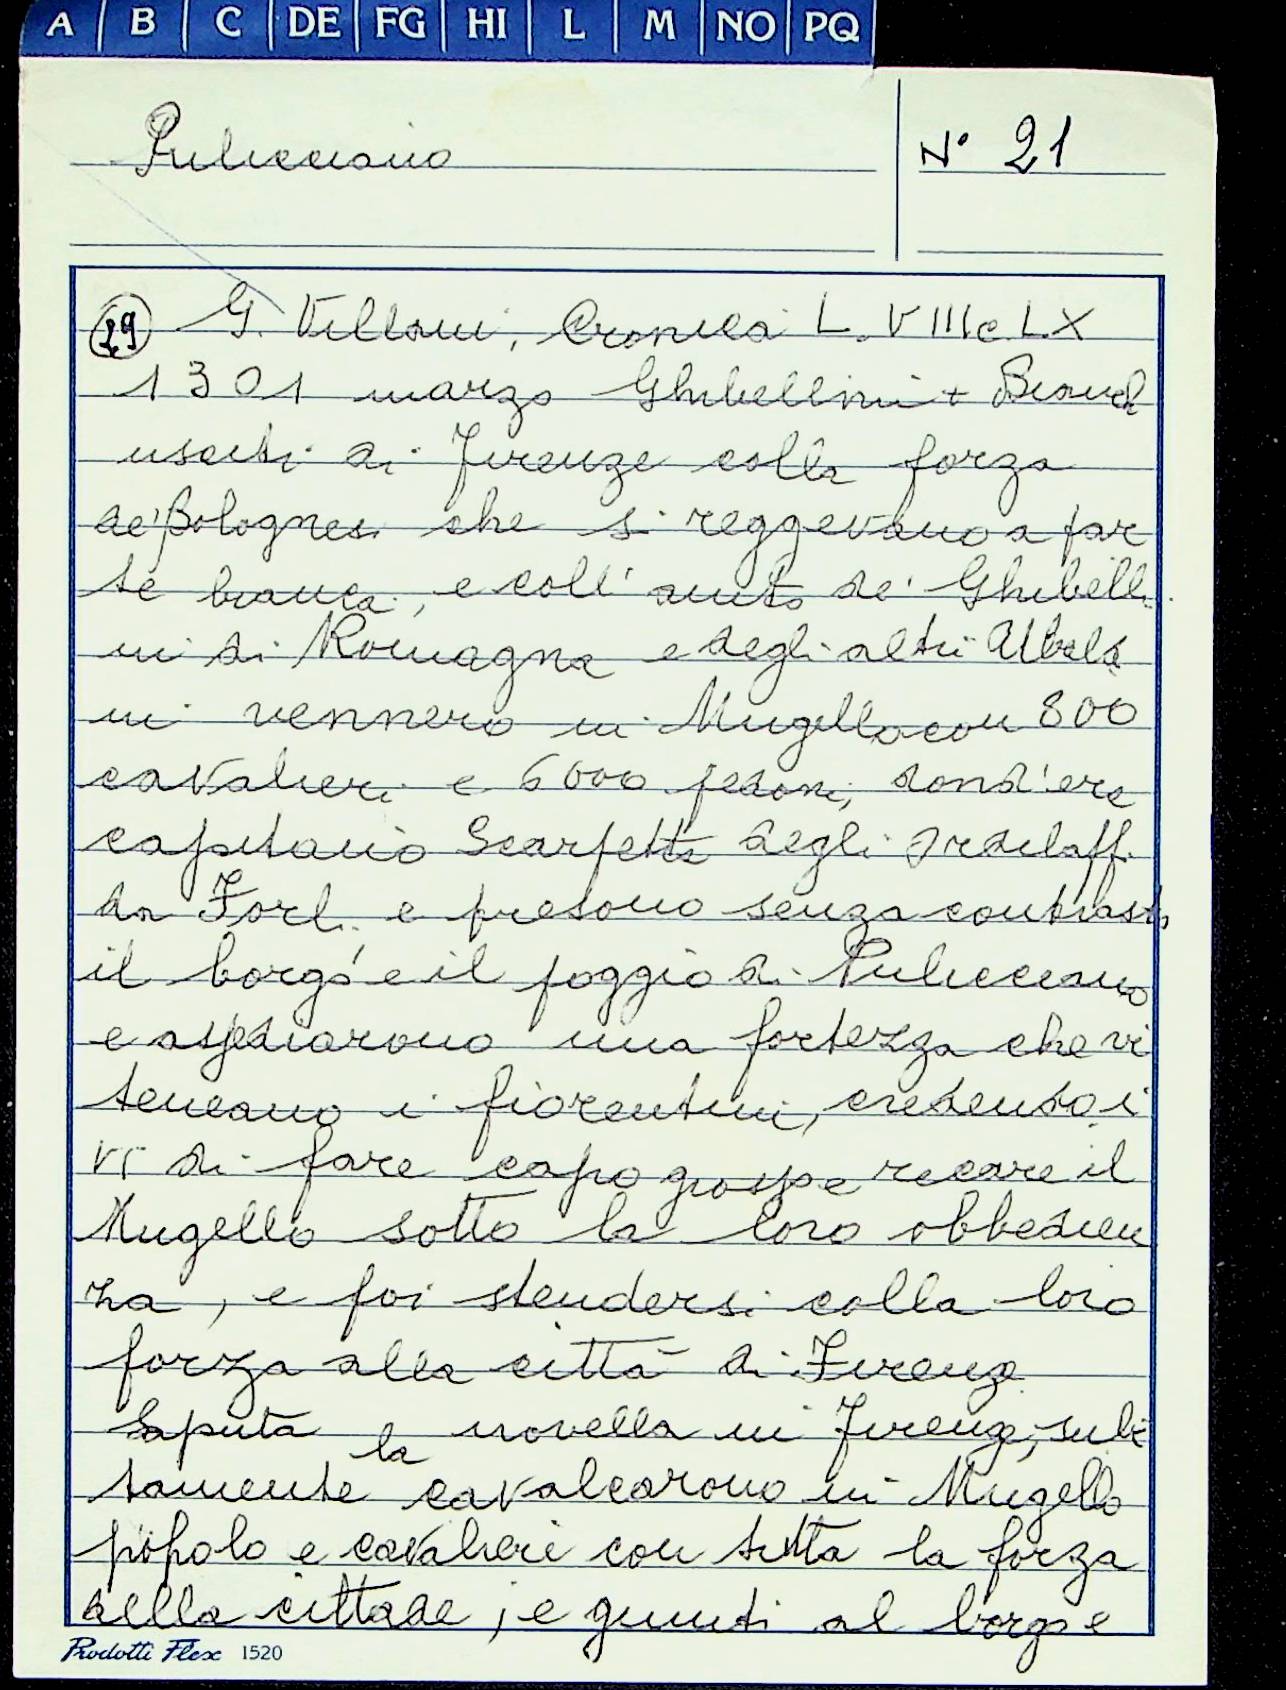 A B C DE FG HI L M NO PQ
Pulicciano
N° 21
29 G. Villani, Cronica L. VIII c. LX
1301 marzo Ghibellini + Bianch
usciti di Firenze colla forza
de' Bolognesi che si reggevano a par
te bianca, e coll' aiuto de' Ghibelli
ni di Romagna e degli altri Ubaldi
ni vennero in Mugello con 800
cavalieri e 6000 pedoni, dond'era
capitano Scarpetta degli Ordelaffi
da Forlì e presono senza contrasto
il borgo e il poggio di Pulicciano
e assediarono una fortezza che vi
teneano i fiorentini, credendo i
vi di fare capo grosso e recare il
Mugello sotto la loro obbedien
za, e poi stendersi colla loro
forza alla città di Firenze
Saputa la novella in Firenze, subi
tamente cavalcarono in Mugello
popolo e cavalieri con tutta la forza
della cittade, e giunti al borgo e
Prodotti Flex 1520